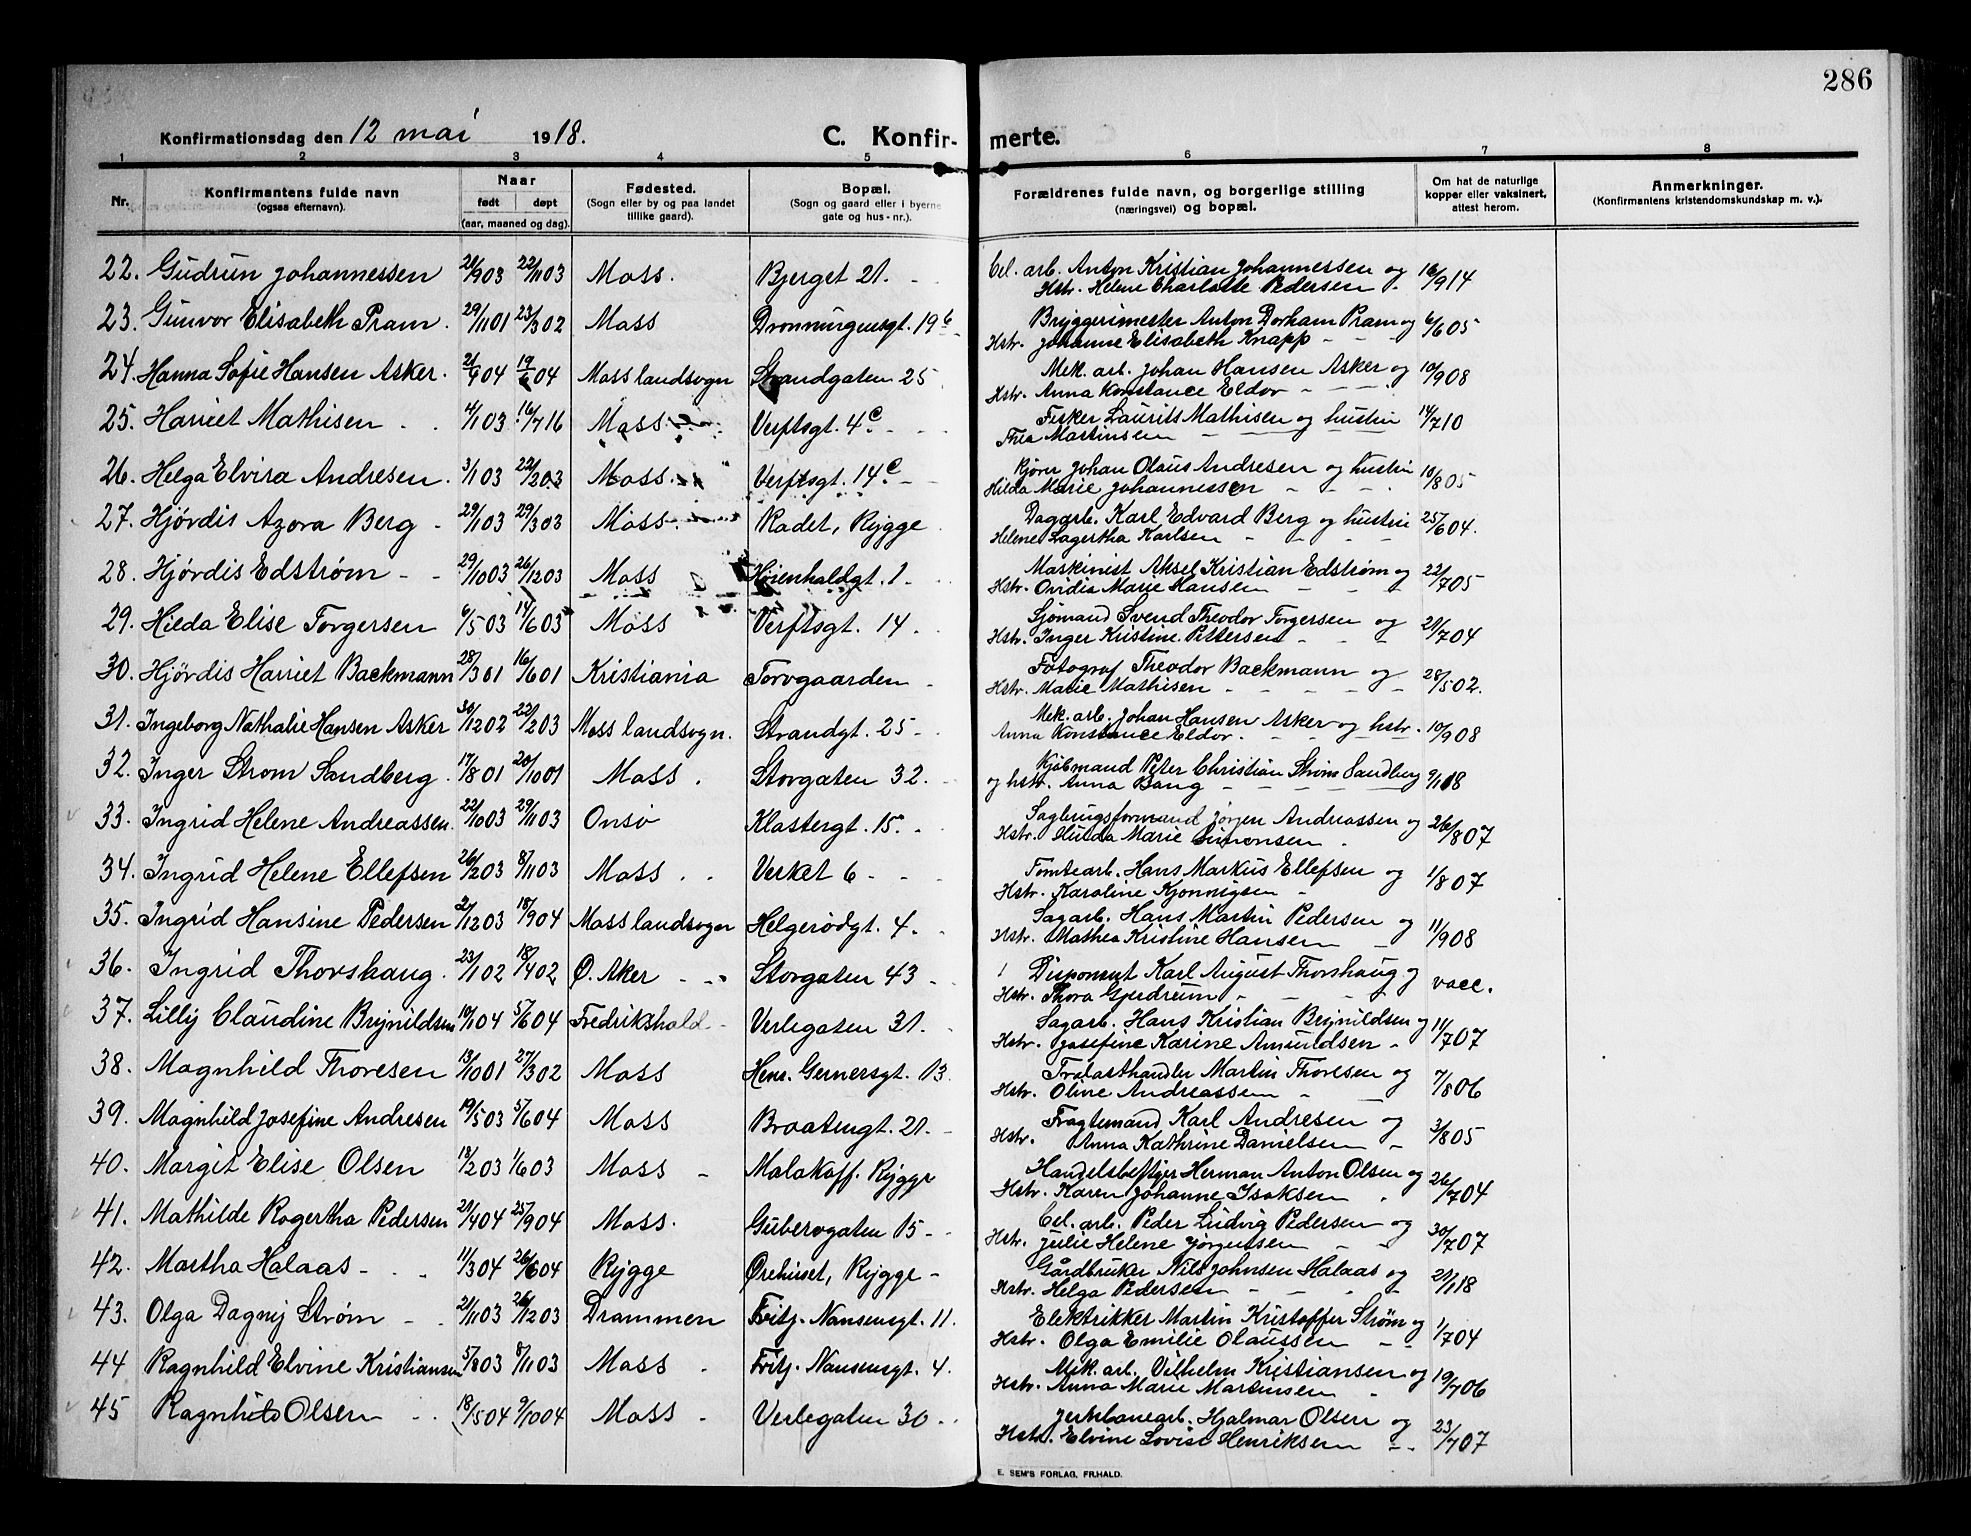 286
Konfirmationsdag den 12 mai 1918. C. Konfirmerte.
1 2 3 4 5 6 7 8
Nr. Konfirmantens fulde navn (ogsaa efternavn). Naar født døpt (aar, maaned og dag). Fødested. (Sogn eller by og paa landet tillike gaard). Bopæl. (Sogn og gaard eller i byerne gate og hus-nr.). Forældrenes fulde navn, og borgerlige stilling (næringsvei) og bopæl. Om hat de naturlige kopper eller vaksinert, attest herom. Anmerkninger. (Konfirmantens kristendomskundskap m. v.).
22. Gudrun Johannessen 21/9 03 22/11 03 Moss. Bjerget 21. Cel. arb. Anton Kristian Johannessen og 16/9 14
Hstr. Helene Charlotte Pedersen
23. Gunvor Elisabeth Pram. 29/11 01 23/3 02 Moss Dronningensgt. 19 b Bryggerimester Anton Dorham Pram og 6/6 05
Hstr. Johanne Elisabeth Knapp
24. Hanna Sofie Hansen Asker. 21/4 04 19/6 04 Moss landsogn Strandgaten 25 Mek. arb. Johan Hansen Asker og 10/9 08
Hstr. Anna Konstance Eldor
25. Harriet Mathisen 4/1 03 16/7 16 Moss Verftsgt. 4 c Fisker Laurits Mathisen og hustru 14/7 10
Thea Martinsen
26. Helga Elvira Andresen. 3/1 03 22/2 03 Moss Verftsgt. 14 c Kjører Johan Olaus Andresen og hustru 10/8 05
Hilda Marie Johannessen
27. Hjørdis Azora Berg 29/1 03 29/3 03 Moss Radet, Rygge Dagarb. Karl Edvard Berg og hustru 25/6 04.
Helene Lagertha Karlsen
28. Hjørdis Edstrøm 29/10 03 26/12 03 Moss Høienhaldgt. 1 Maskinist Aksel Kristian Edstrøm og 22/7 05
Hstr. Ovidia Marie Hansen
29. Hilda Elise Torgersen 6/5 03 14/6 03 Moss Verftsgt. 14 Sjømand Svend Theodor Torgersen og 21/7 04
Hstr. Inger Kristine Pettersen
30. Hjørdis Harriet Backmann 28/3 01 16/6 01 Kristiania Torvgaarden Fotograf Theodor Backmann og 28/5 02.
Hstr. Marie Mathisen
31. Ingeborg Nathalie Hansen Asker 30/12 02 22/2 03 Moss landsogn. Strandgt. 25 Mek. arb. Johan Hansen Asker og hstr. 10/9 08
Anna Konstance Eldor.
32. Inger Strøm Sandberg 17/8 01 20/10 01 Moss. Storgaten 32. Kjøbmand Peter Christian Strøm Sandberg 9/1 18
og hstr. Anna Bang
33. Ingrid Helene Andreassen. 22/10 03 29/11 03 Onsø Klostergt. 15. Sagbrugsformand Jørgen Andreassen og 26/8 07
Hstr. Hulda Marie Simensen
34. Ingrid Helene Ellefsen 26/2 03 8/11 03 Moss Verket 6 Tomtearb. Hans Markus Ellefsen og 1/8 07
Hstr. Karoline Kjønnigsen
35. Ingrid Hansine Pedersen 21/12 03 18/9 04 Moss landsogn Helgerødgt. 4. Sagarb. Hans Martin Pedersen og 11/9 08
Hstr. Mathea Kristine Hansen
36. Ingrid Thorshaug. 23/1 02 18/4 02 Ø. Aker Storgaten 43 Disponent Karl August Thorshaug og vacc.
Hstr. Thora Gjerdrum
37. Lilly Claudine Brynildsen 10/1 04 5/6 04 Fredrikshald Verlegaten 31. Sagarb. Hans Kristian Brynildsen og 11/7 07
Hstr. Josefine Karine Amundsen
38. Magnhild Thoresen 13/10 01 27/3 02 Moss Henr. Gernersgt. 13. Trælasthandler Martin Thoresen og 7/8 06
Hstr. Oline Andreassen
39. Magnhild Josefine Andresen 19/5 03 5/6 04 Moss Braatengt. 21. Fragtemand Karl Andresen og 3/8 05
Hstr. Anna Kathrine Danielsen
40. Margit Elise Olsen 13/2 03 1/6 03 Moss Malakoff. Rygge Handelsbetjer Herman Anton Olsen og 26/7 04
Hstr. Karen Johanne Isaksen
41. Mathilde Ragertha Pedersen 21/4 04 25/9 04 Moss. Gubergaten 15 Cel. arb. Peder Ludvig Pedersen og 30/7 07
Hstr. Julie Helene Jørgensen
42. Martha Halaas 11/3 04 26/6 04 Rygge Ørehuset, Rygge Gårdbruker Nils Johnsen Halaas og 21/1 18
Hstr. Helga Pedersen
43. Olga Dagny Strøm 21/11 03 26/12 03 Drammen Fritj. Nansensgt. 11. Elektrikker Martin Kristoffer Strøm og 1/7 04
Hstr. Olga Emilie Olaussen
44 Ragnhild Elvine Kristiansen 5/8 03 8/11 03 Moss Fritj. Nansensgt. 4. Mek. arb. Vilhelm Kristiansen og 19/7 06
Hstr. Anna Marie Martinsen
45 Ragnhild Olsen 18/5 04 9/10 04 Moss Verlegaten 30 Jernbanearb. Hjalmar Olsen og 23/7 07
Hstr. Elvine Lovise Henriksen
E. SEM'S FORLAG, FR.HALD.